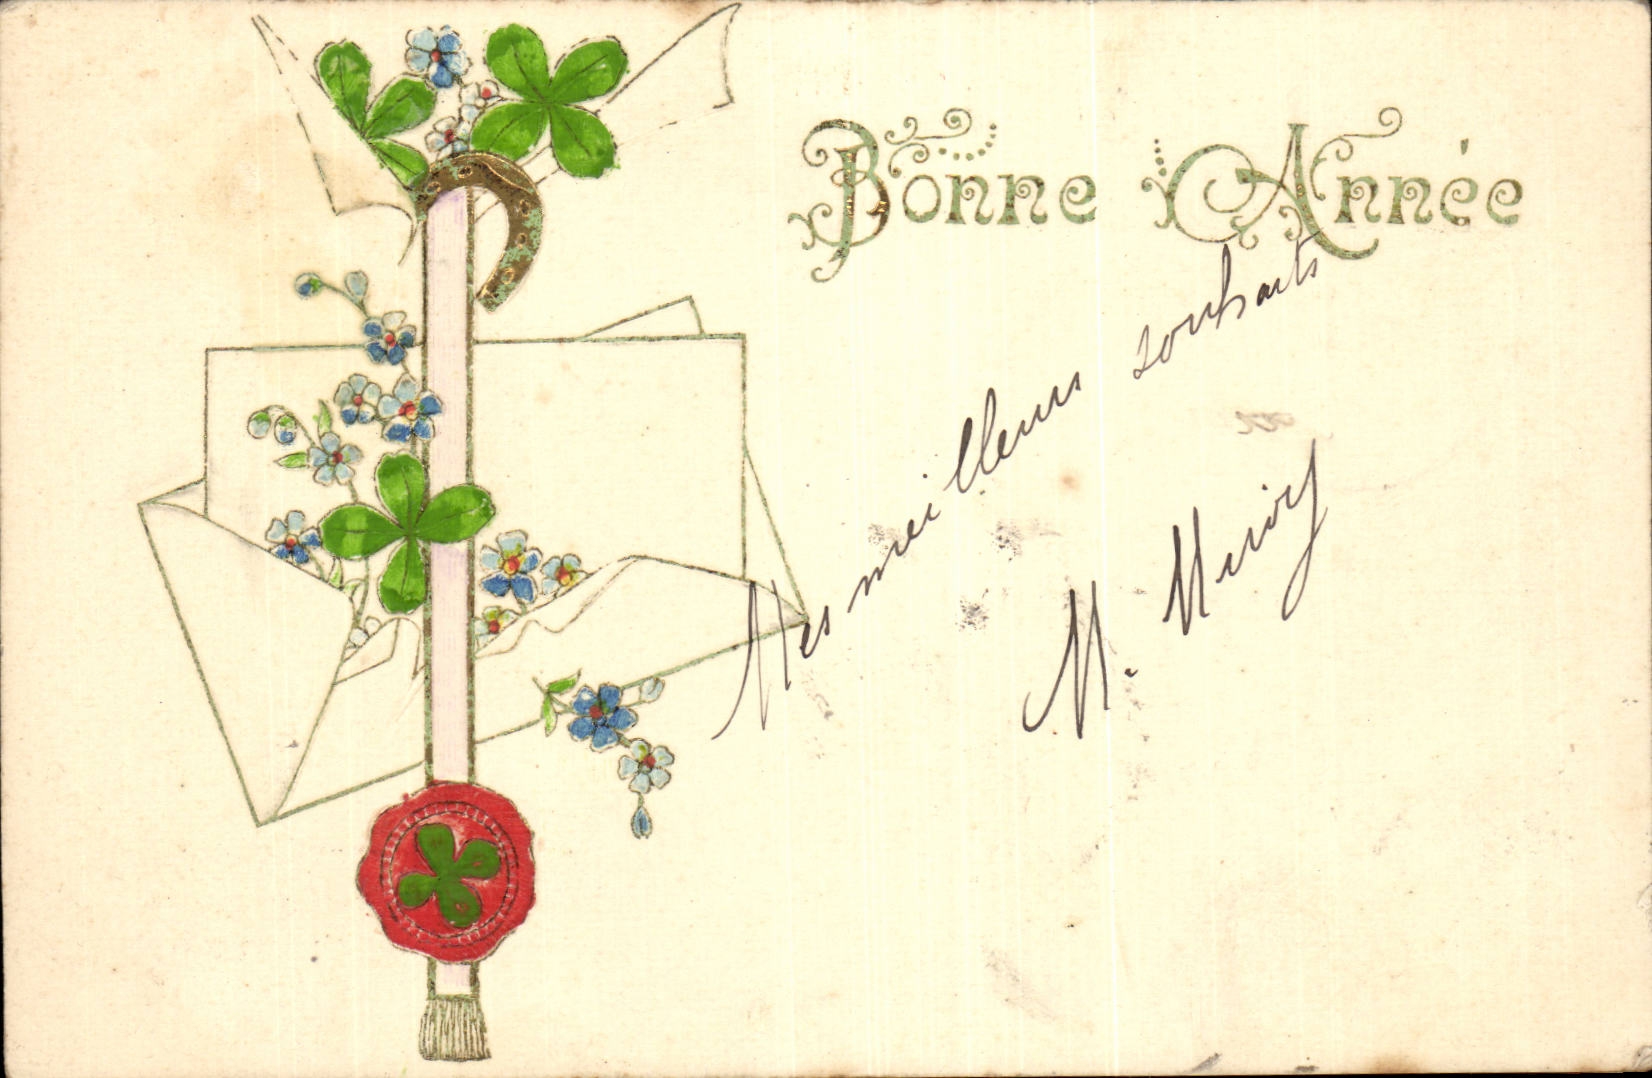 Bonne Année
Mes meilleurs souhaits
M.